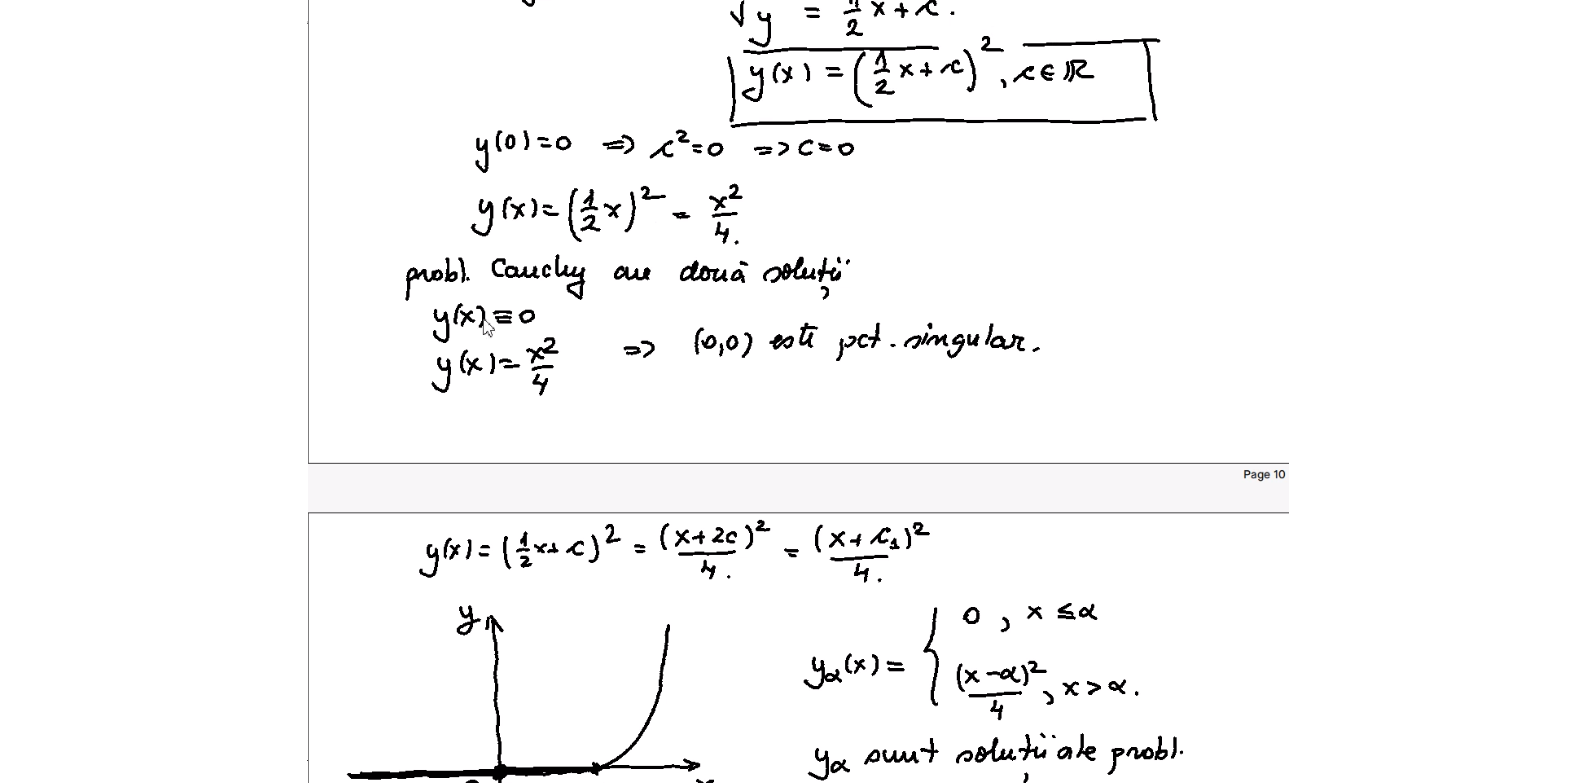 √y = 1/2 x + c.
y(x) = (1/2 x + c)², c ∈ ℝ
y(0)=0 => c²=0 => c=0
y(x) = (1/2 x)² = x²/4.
probl. Cauchy are două soluții
y(x) ≡ 0
y(x) = x²/4 => (0,0) este pct. singular.
Page 10
y(x) = (1/2 x + c)² = (x+2c)²/4. = (x+c₁)²/4.
y
yα(x) = { 0, x ≤ α
(x-α)²/4, x > α.
yα sunt soluții ale probl.